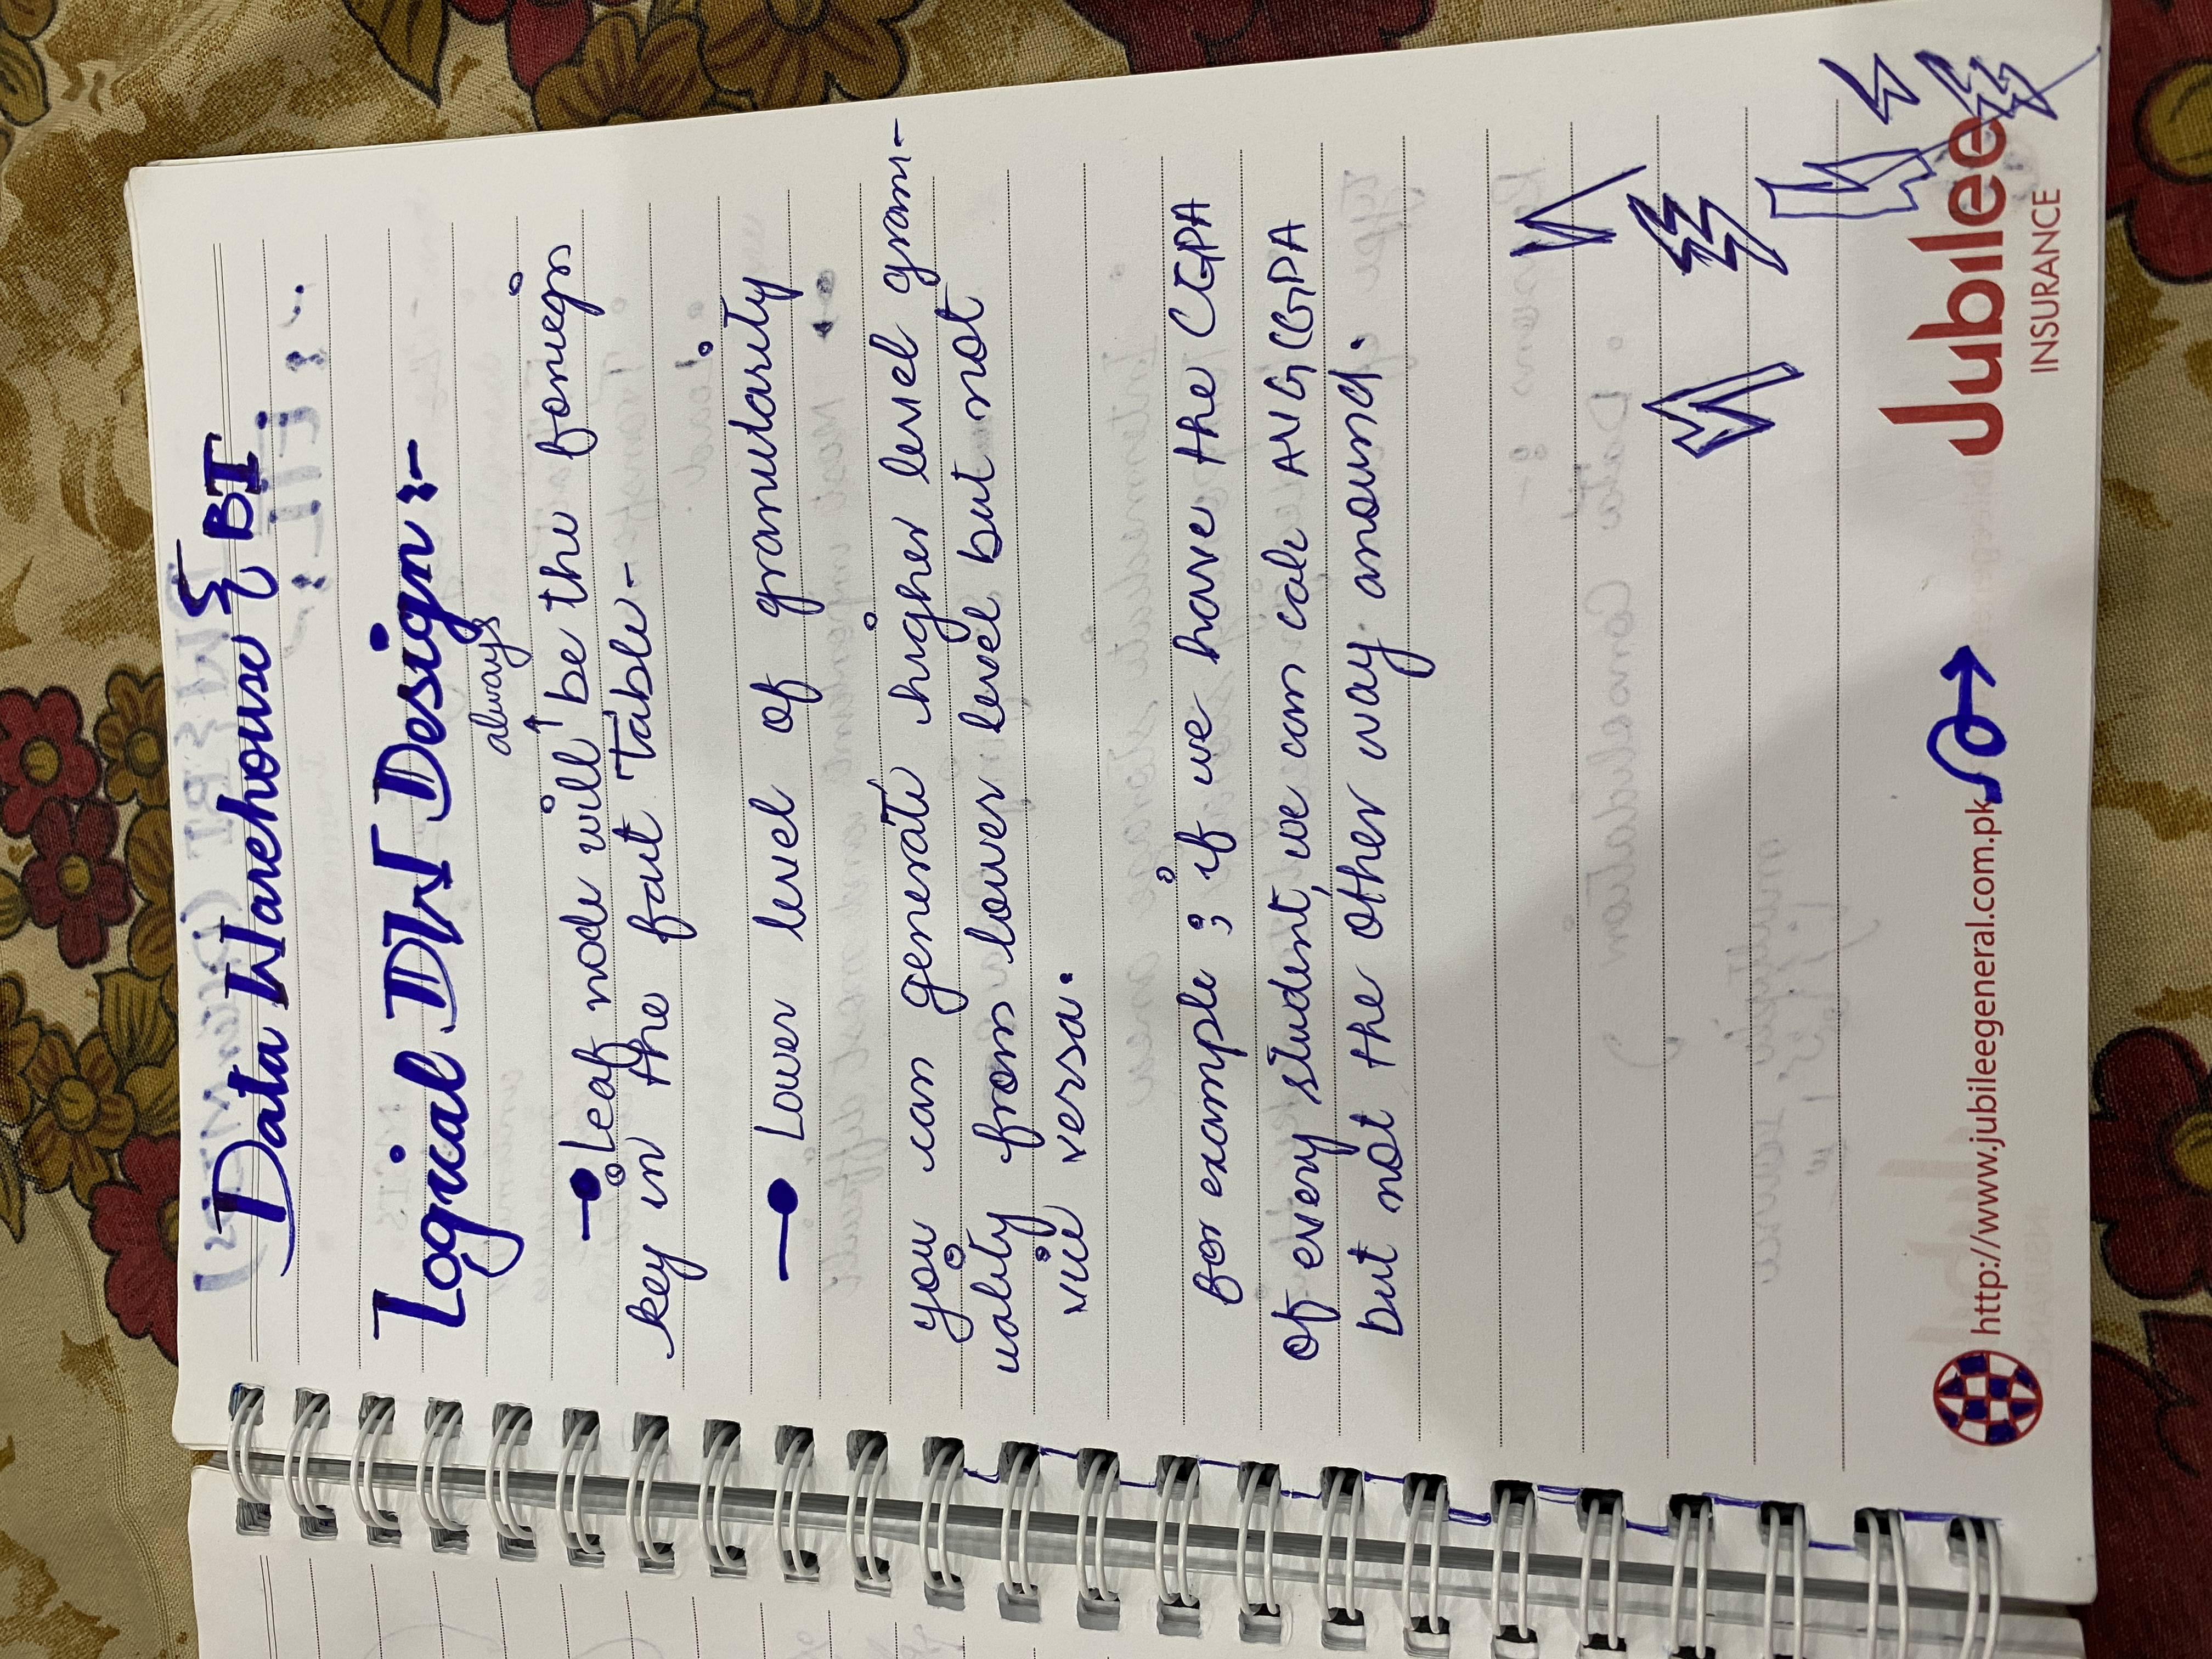 Data Warehouse & BI
Logical DW Design :-
always
↑
Leaf node will be the foriegn
key in the fact Table-
Lower level of granularity
you can generate higher level gran-
uality from lower level but not
vice versa.
for example ; if we have the CGPA
of every student, we can calc AVG CGPA
but not the other way around.
http://www.jubileegeneral.com.pk
Jubilee
INSURANCE